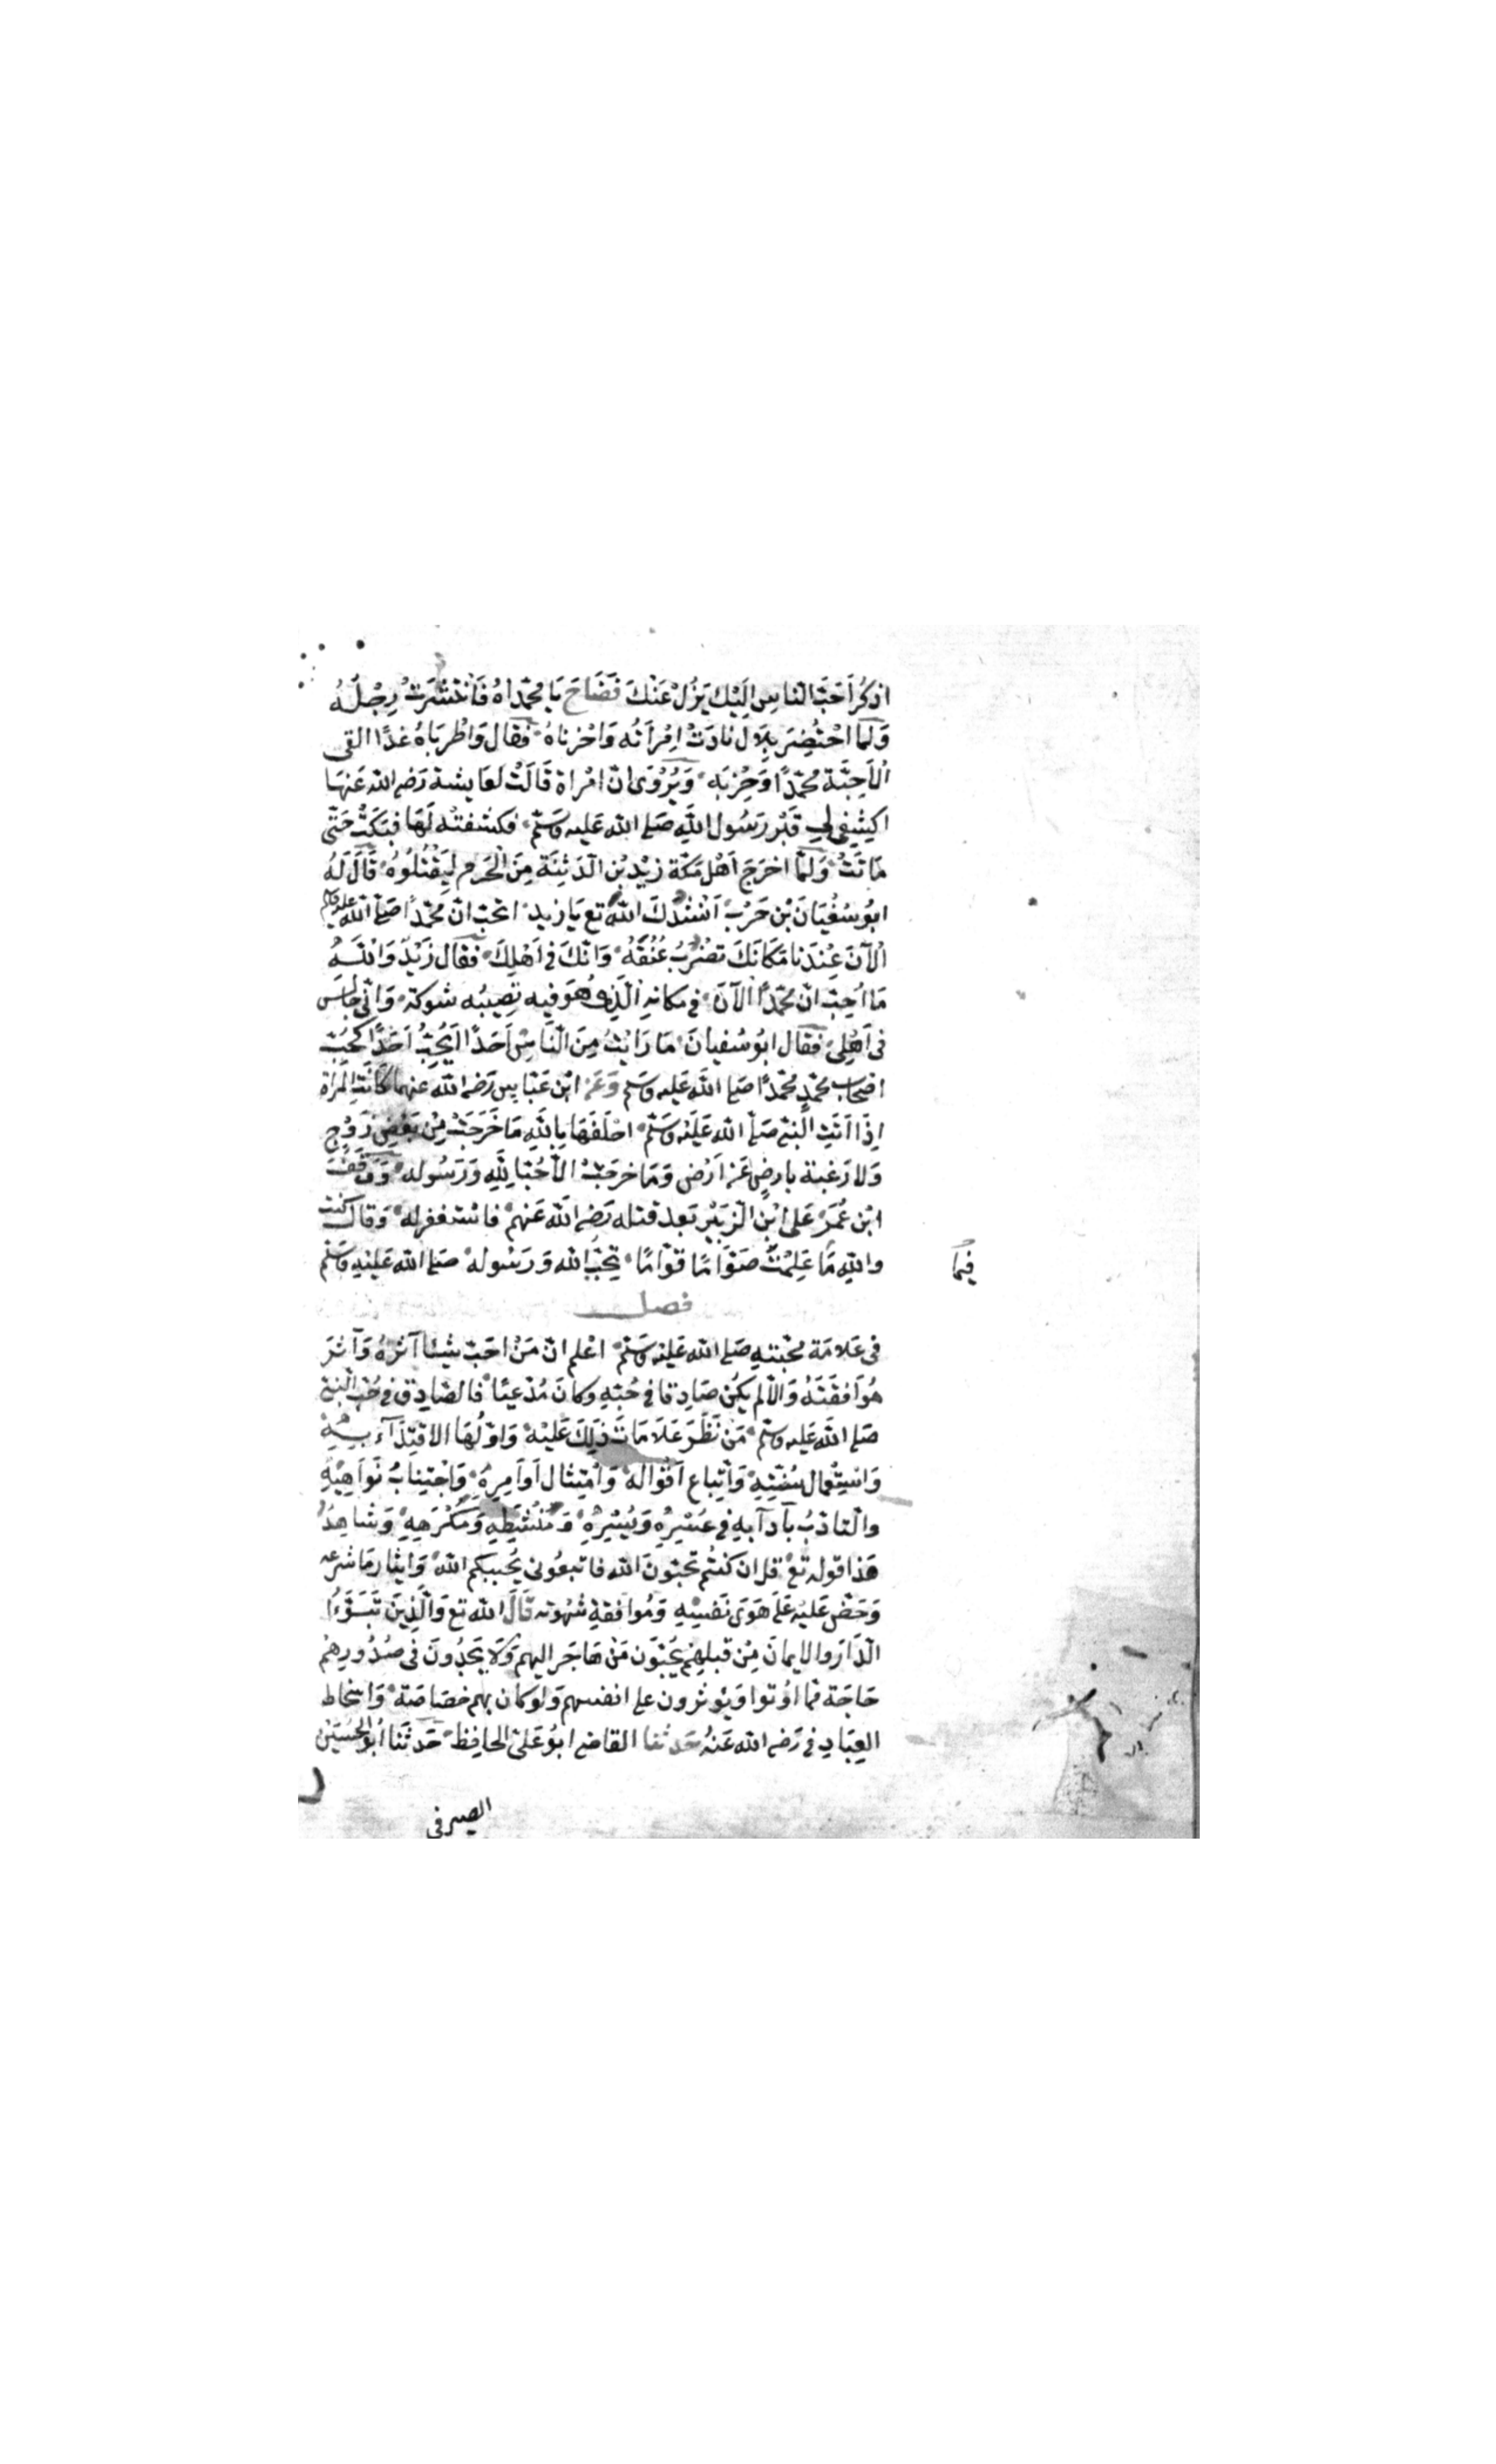 اذكُر اَحَبَّ الناسِ اِلَيْك يَزُل عَنْكَ فَصَاحَ يَا محمّداهُ فَانْتَشَرَتْ رِجْلُهُ
وَلمّا احْتُضِرَ بِلَال نادَتْ اِمْرَأتُه وَاحُزناهُ فقال وَاطرَبَاهُ غدًا القى
الْاَحِبَّة محمّدًا وَحِزبَه وَيُرْوَى انّ امْرَاة قَالَتْ لعَايشة رَضي الله عَنهَا
اكشِفى لي قَبْر رَسُول اللهِ صَلى الله عَليه وسَلّم فكشفتْه لَهَا فبَكَتْ حَتّى
مَاتَتْ وَلَمّا اخرَجَ اَهْل مَكّة زَيْد بْن الدَثِنَة مِنَ الْحَرَم لِيَقْتُلُوهُ قَالَ لَهُ
ابُو سُفْيَانَ بْن حَرْبٍ اَنْشُدُكَ اللهَ تع يَا زيد اتحبّ انّ محمّدًا صَلى الله عليه وسلم
الْآنَ عِنْدَنا مَكَانَكَ تضْرَبُ عُنُقُهُ وَانّكَ فى اَهْلِكَ فقال زَيْدٌ وَاللهِ
مَا اُحِبّ انّ محمّدًا الآنَ فى مَكانِهِ الّذى هُوَ فيه تصِيبُه شَوكة وَانّى جَالِس
فى اَهْلِى فقال ابُو سُفيانَ مَا رَاَيْتُ مِنَ النَّاسِ اَحَدًا يُحِبُّ اَحَدًا كحُبّ
اصْحَاب محمّدٍ محمّدًا صَلى الله عَليه وسَلم وَعَن ابْن عَبّاس رَضي الله عنهما كَانَتِ المرْاة
اِذَا اَتَتِ النّبيّ صَلى الله عَليْه وسَلّم احْلَفَهَا بِاللهِ مَا خَرَجَتْ مِنْ بغْضِ زَوْج
وَلا رَغبَة بارضٍ عَن اَرْض وَمَا خرجَتْ الّا حُبّا لِلّهِ وَرَسُوله وَوَقَفَ
ابْن عُمَرَ عَلى ابْن الزبَيْر بَعد قتله رَضِي الله عَنهم فاستغفر له وَقال كنت
واللهِ مَا عَلِمْتُ صَوّامًا قوّامًا تحِبّ الله وَرَسُوله صَلى الله عَليْهِ وسَلّم
فيما
فصل
فى عَلامَة محَبّتِهِ صَلى الله عَليْه وسَلّم اعْلم انّ مَنْ احَبّ شيْئًا آثَرَهُ وَآثَرَ
مُوَافَقَتَهُ وَالّا لم يَكُن صَادِقا فى حُبّهِ وكانَ مُدّعِيًا فالصَادِق فى حُبّ النّبيّ
صَلى الله عَليه وسلّم مَن تظْهَر عَلَامَات ذَلِكَ عَلَيْهِ وَاوّلُهَا الاقْتِدَآء بِهِ
وَاسْتِعْمال سُنّتِهِ وَاتّباع اَقْوَاله وَامْتِثَال اَوَامِرِهِ وَاجْتِنَابُ نَوَاهِيْهِ
والتادّبُ بآدَآبهِ فى عُسْرِهِ وَيُسْرِهِ وَمَنْشَطِهِ وَمَكْرَهِهِ وَشَاهِدُ
هَذا قوله تعْ قل ان كنتُم تحِبّونَ الله فاتبعُونى يُحْببكم الله وَايثار مَا شرعه
وَحَضّ عَليْه عَلَى هَوَى نَفْسِهِ وَمُوافَقةِ شَهْوَته قَالَ الله تع وَالّذِينَ تَبَوَّءُا
الدّار والايمانَ مِنْ قَبلِهِمْ يُحِبّون مَنْ هَاجَر اليهم وَلَا يَجدُونَ فى صُدُورِهِمْ
حَاجَة ممّا اوْتوا وَيؤثرون على انفسهم وَلوْ كان بهم خصَاصَة وَاسْخاط
العِبَادِ فى رَضى الله عَنْهُ حَدثنا القاضى ابُو عَلىّ الحافِظُ حَدثنَا ابُو الحُسَيْن
الصيرفى